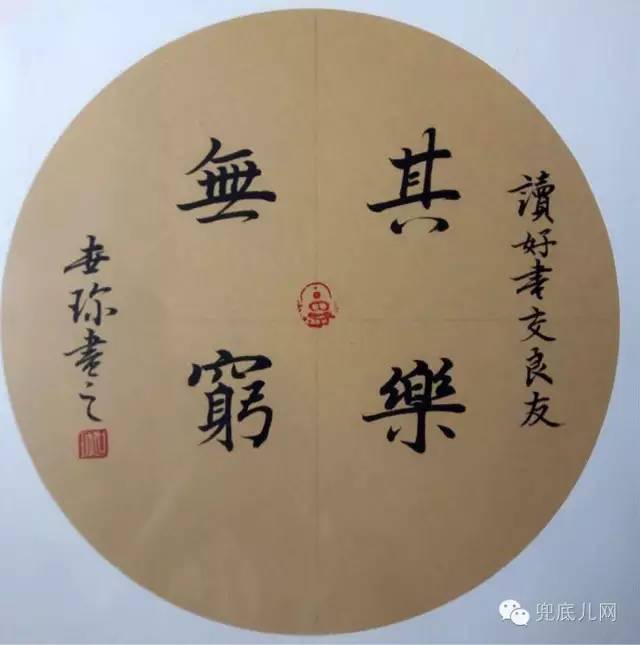 讀好書交良友
其樂
無窮
世珎書之
兜底儿网